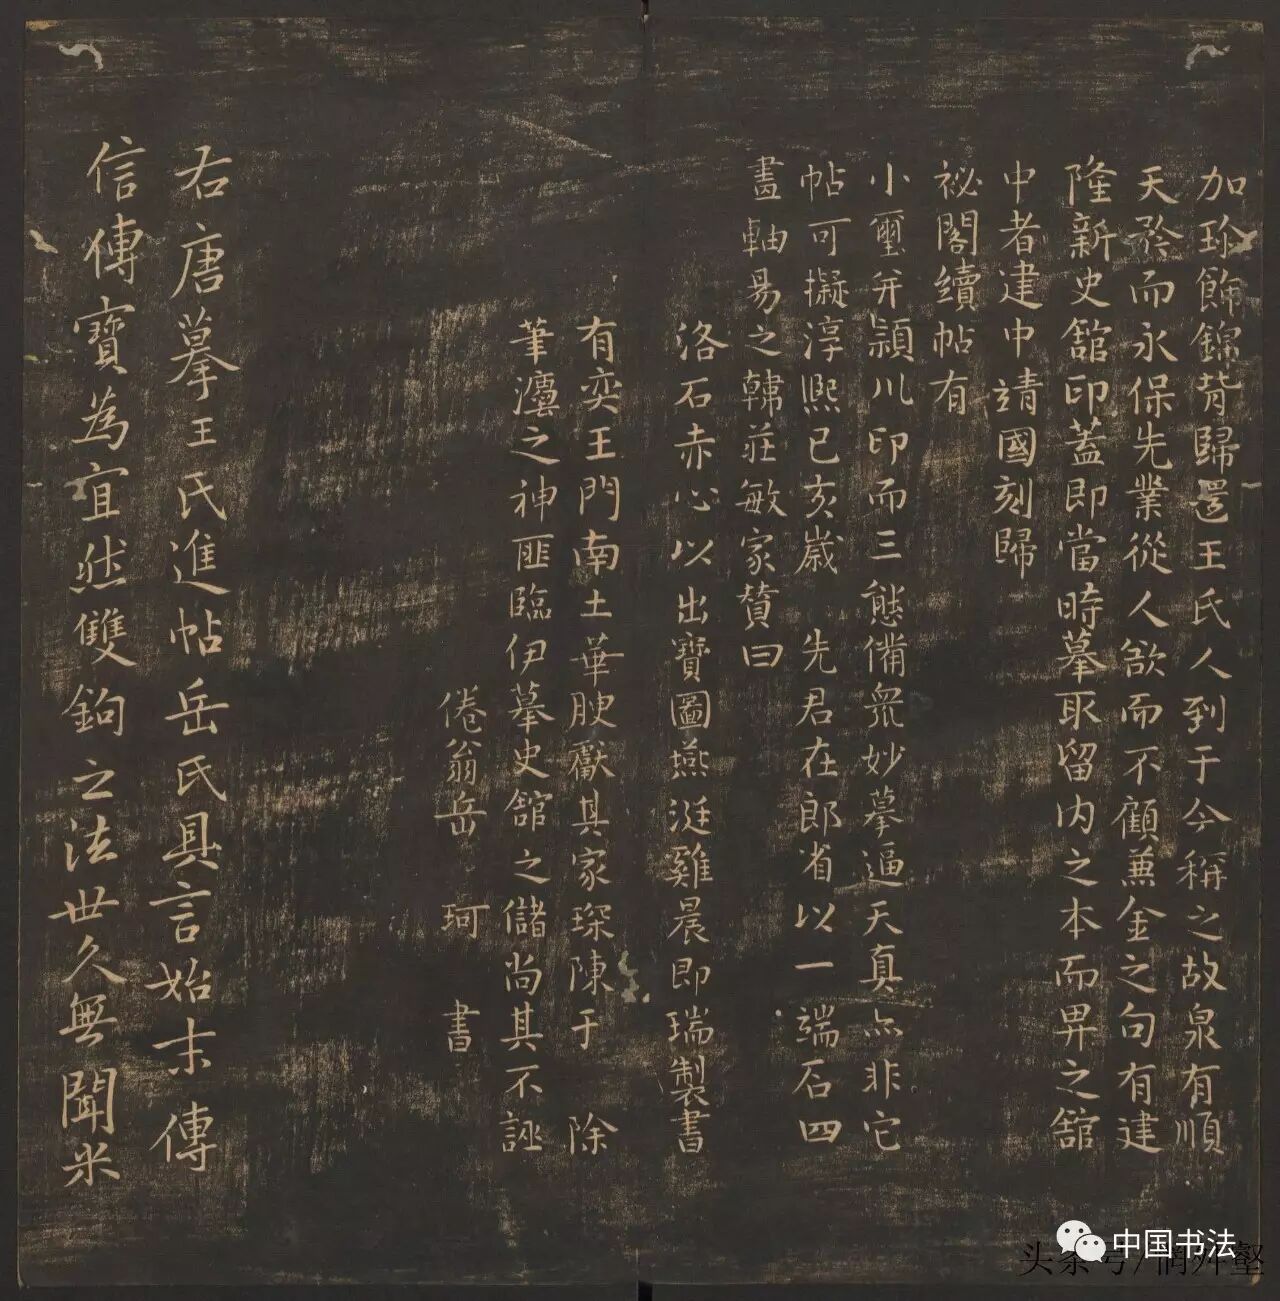 加珍飾錦背歸還王氏人到于今稱之故泉有順
天發而永保先業從人欲而不顧兼金之句有建
隆新史館印蓋即當時摹取留内之本而畀之館
中者建中靖國刻歸
祕閣續帖有
小璽并潁川印而三態備衆妙摹逼天真亦非它
帖可擬淳熙己亥歲 先君在郎省以一端石四
畫軸易之韓莊敏家贊曰
洛石赤心以出寶圖燕涎雞晨即瑞製書
有奕王門南土華腴獻其家琛陳于 除
筆瀍之神匪臨伊摹史館之儲尚其不誣
倦翁岳珂 書
右唐摹王氏進帖岳氏具言始末傳
信傳寶為宜然雙鉤之法世久無聞米
中国书法